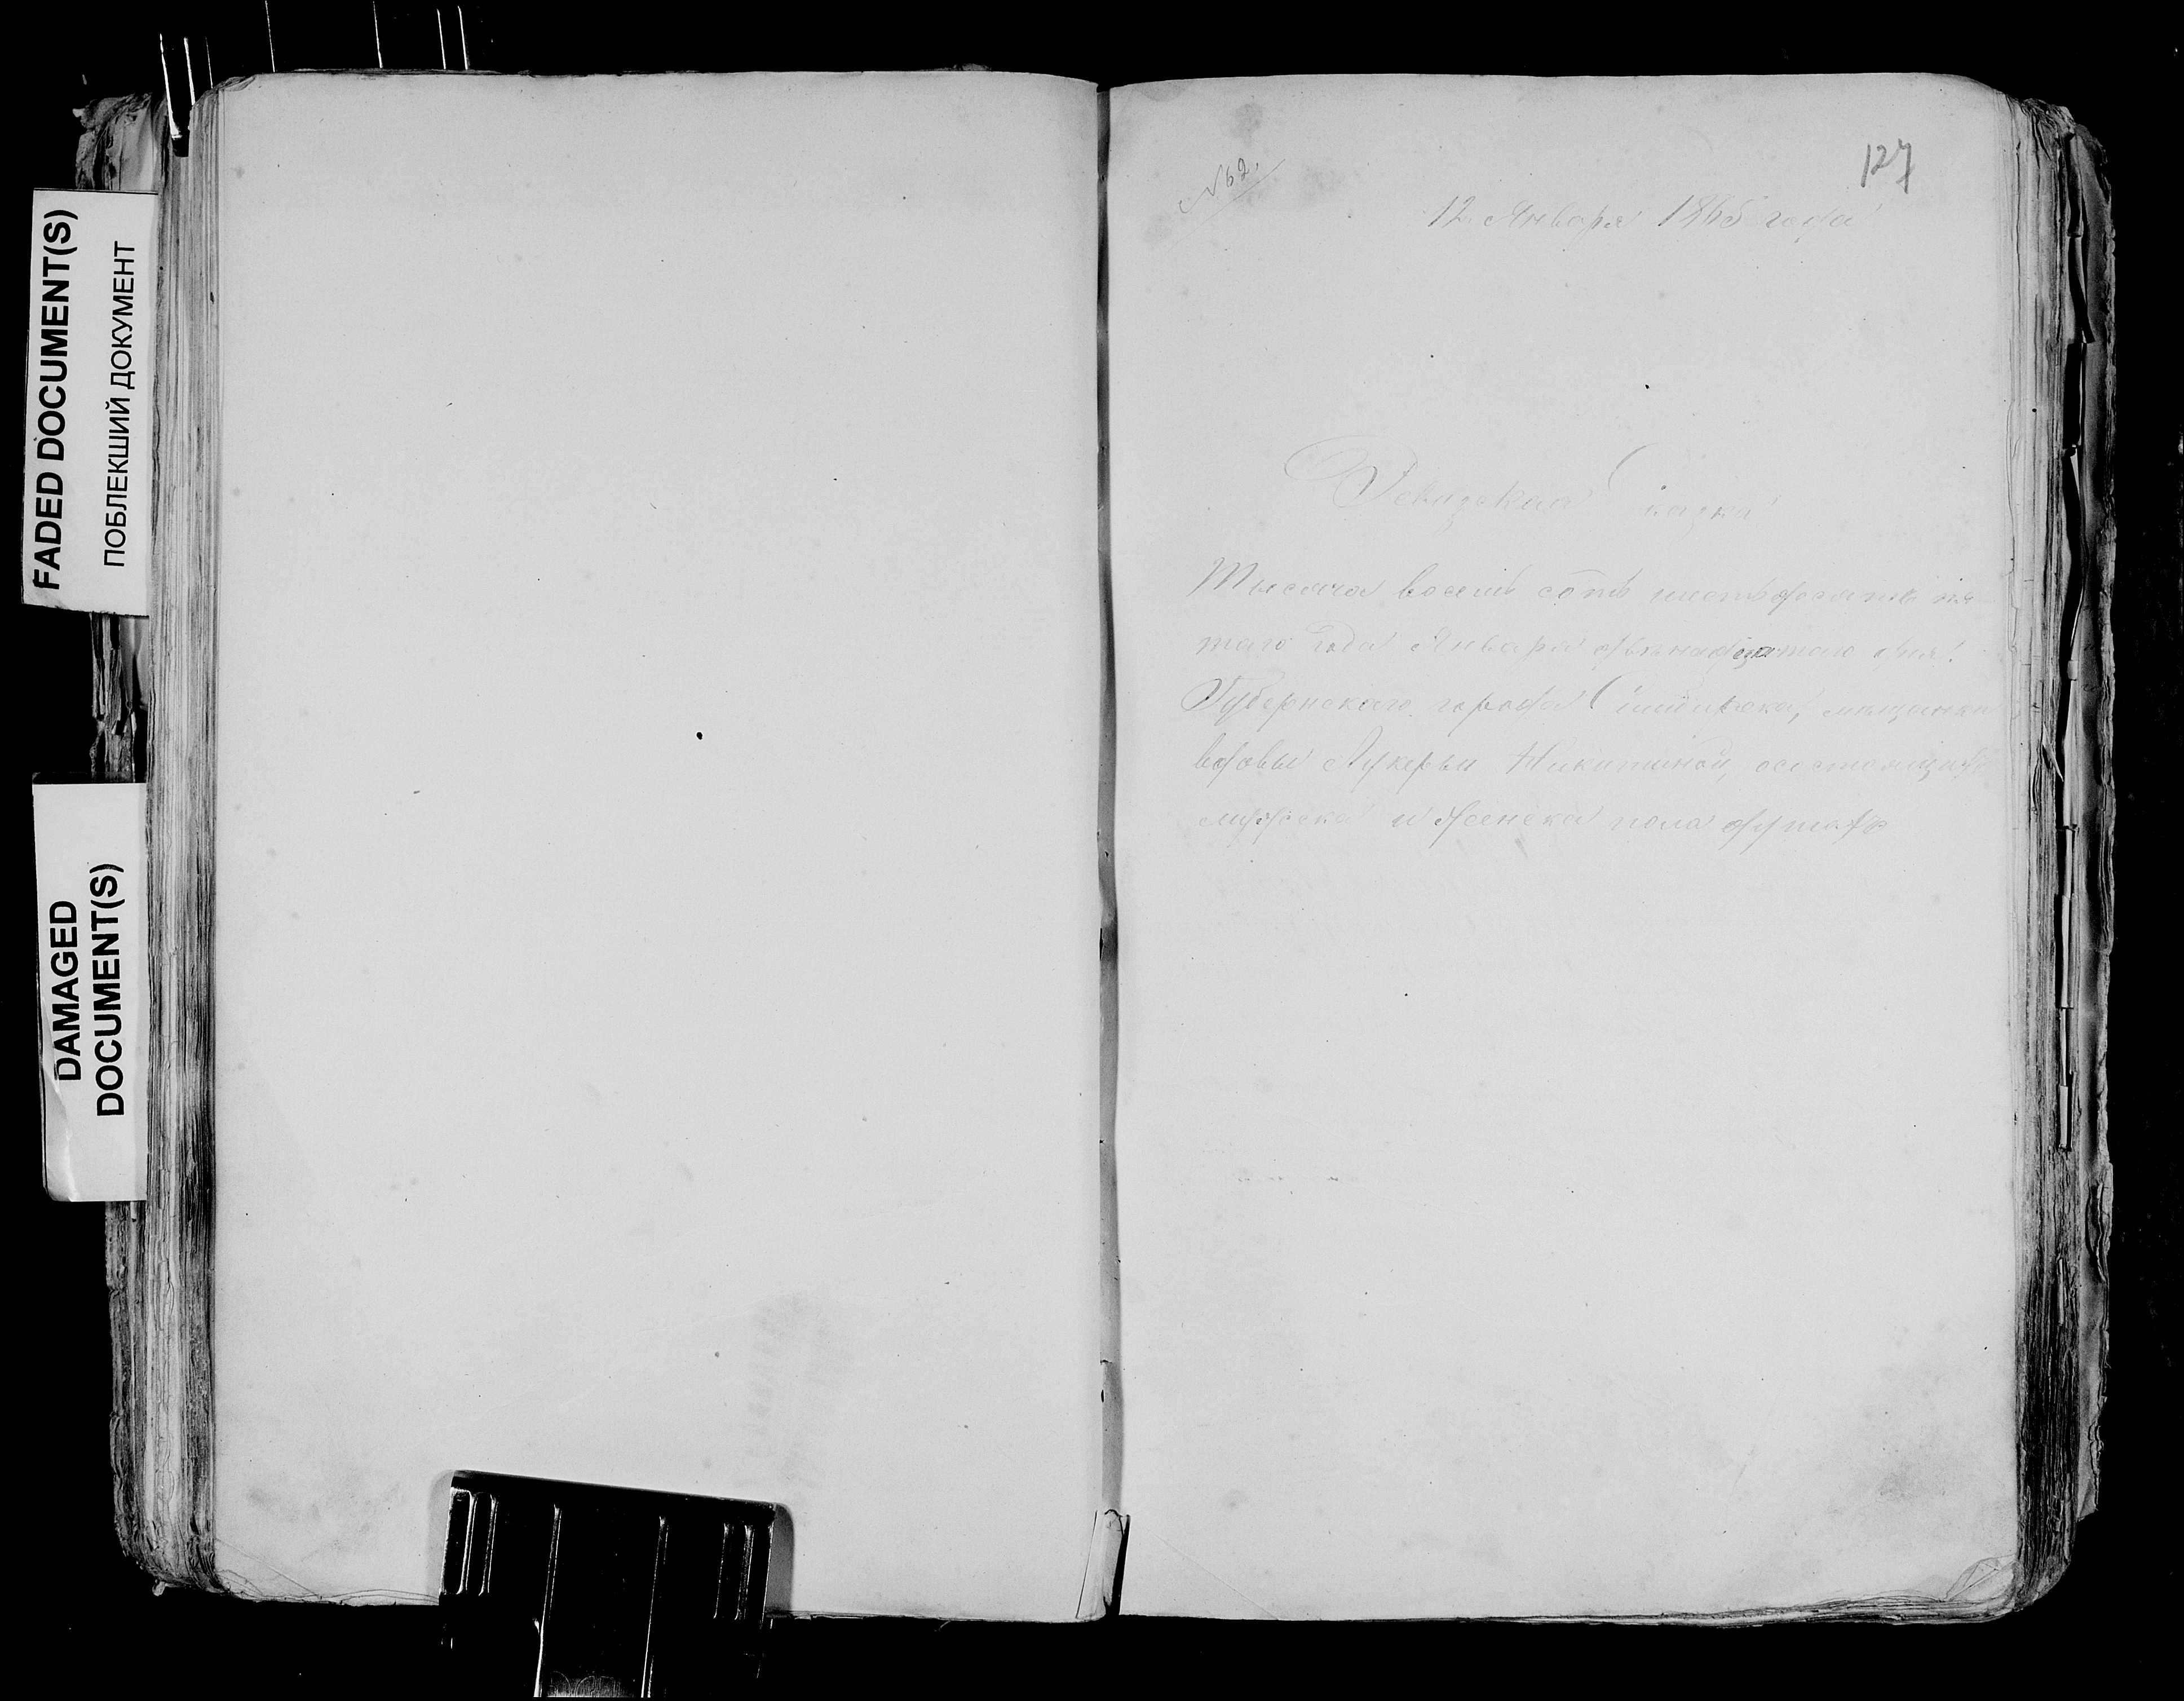 FADED DOCUMENT(S)
ПОБЛЕКШИЙ ДОКУМЕНТ
DAMAGED
DOCUMENT(S)
127
№ 62.
12 Января 1865 года
Ревизская Сказка
Тысяча восемь сотъ шестьдесятъ пя-
таго года Января двенадцатаго дня.
Губернскаго города Симбирска, мещанки
вдовы Лукерьи Никитиной, о состоящихъ
мужеска и женска пола душахъ